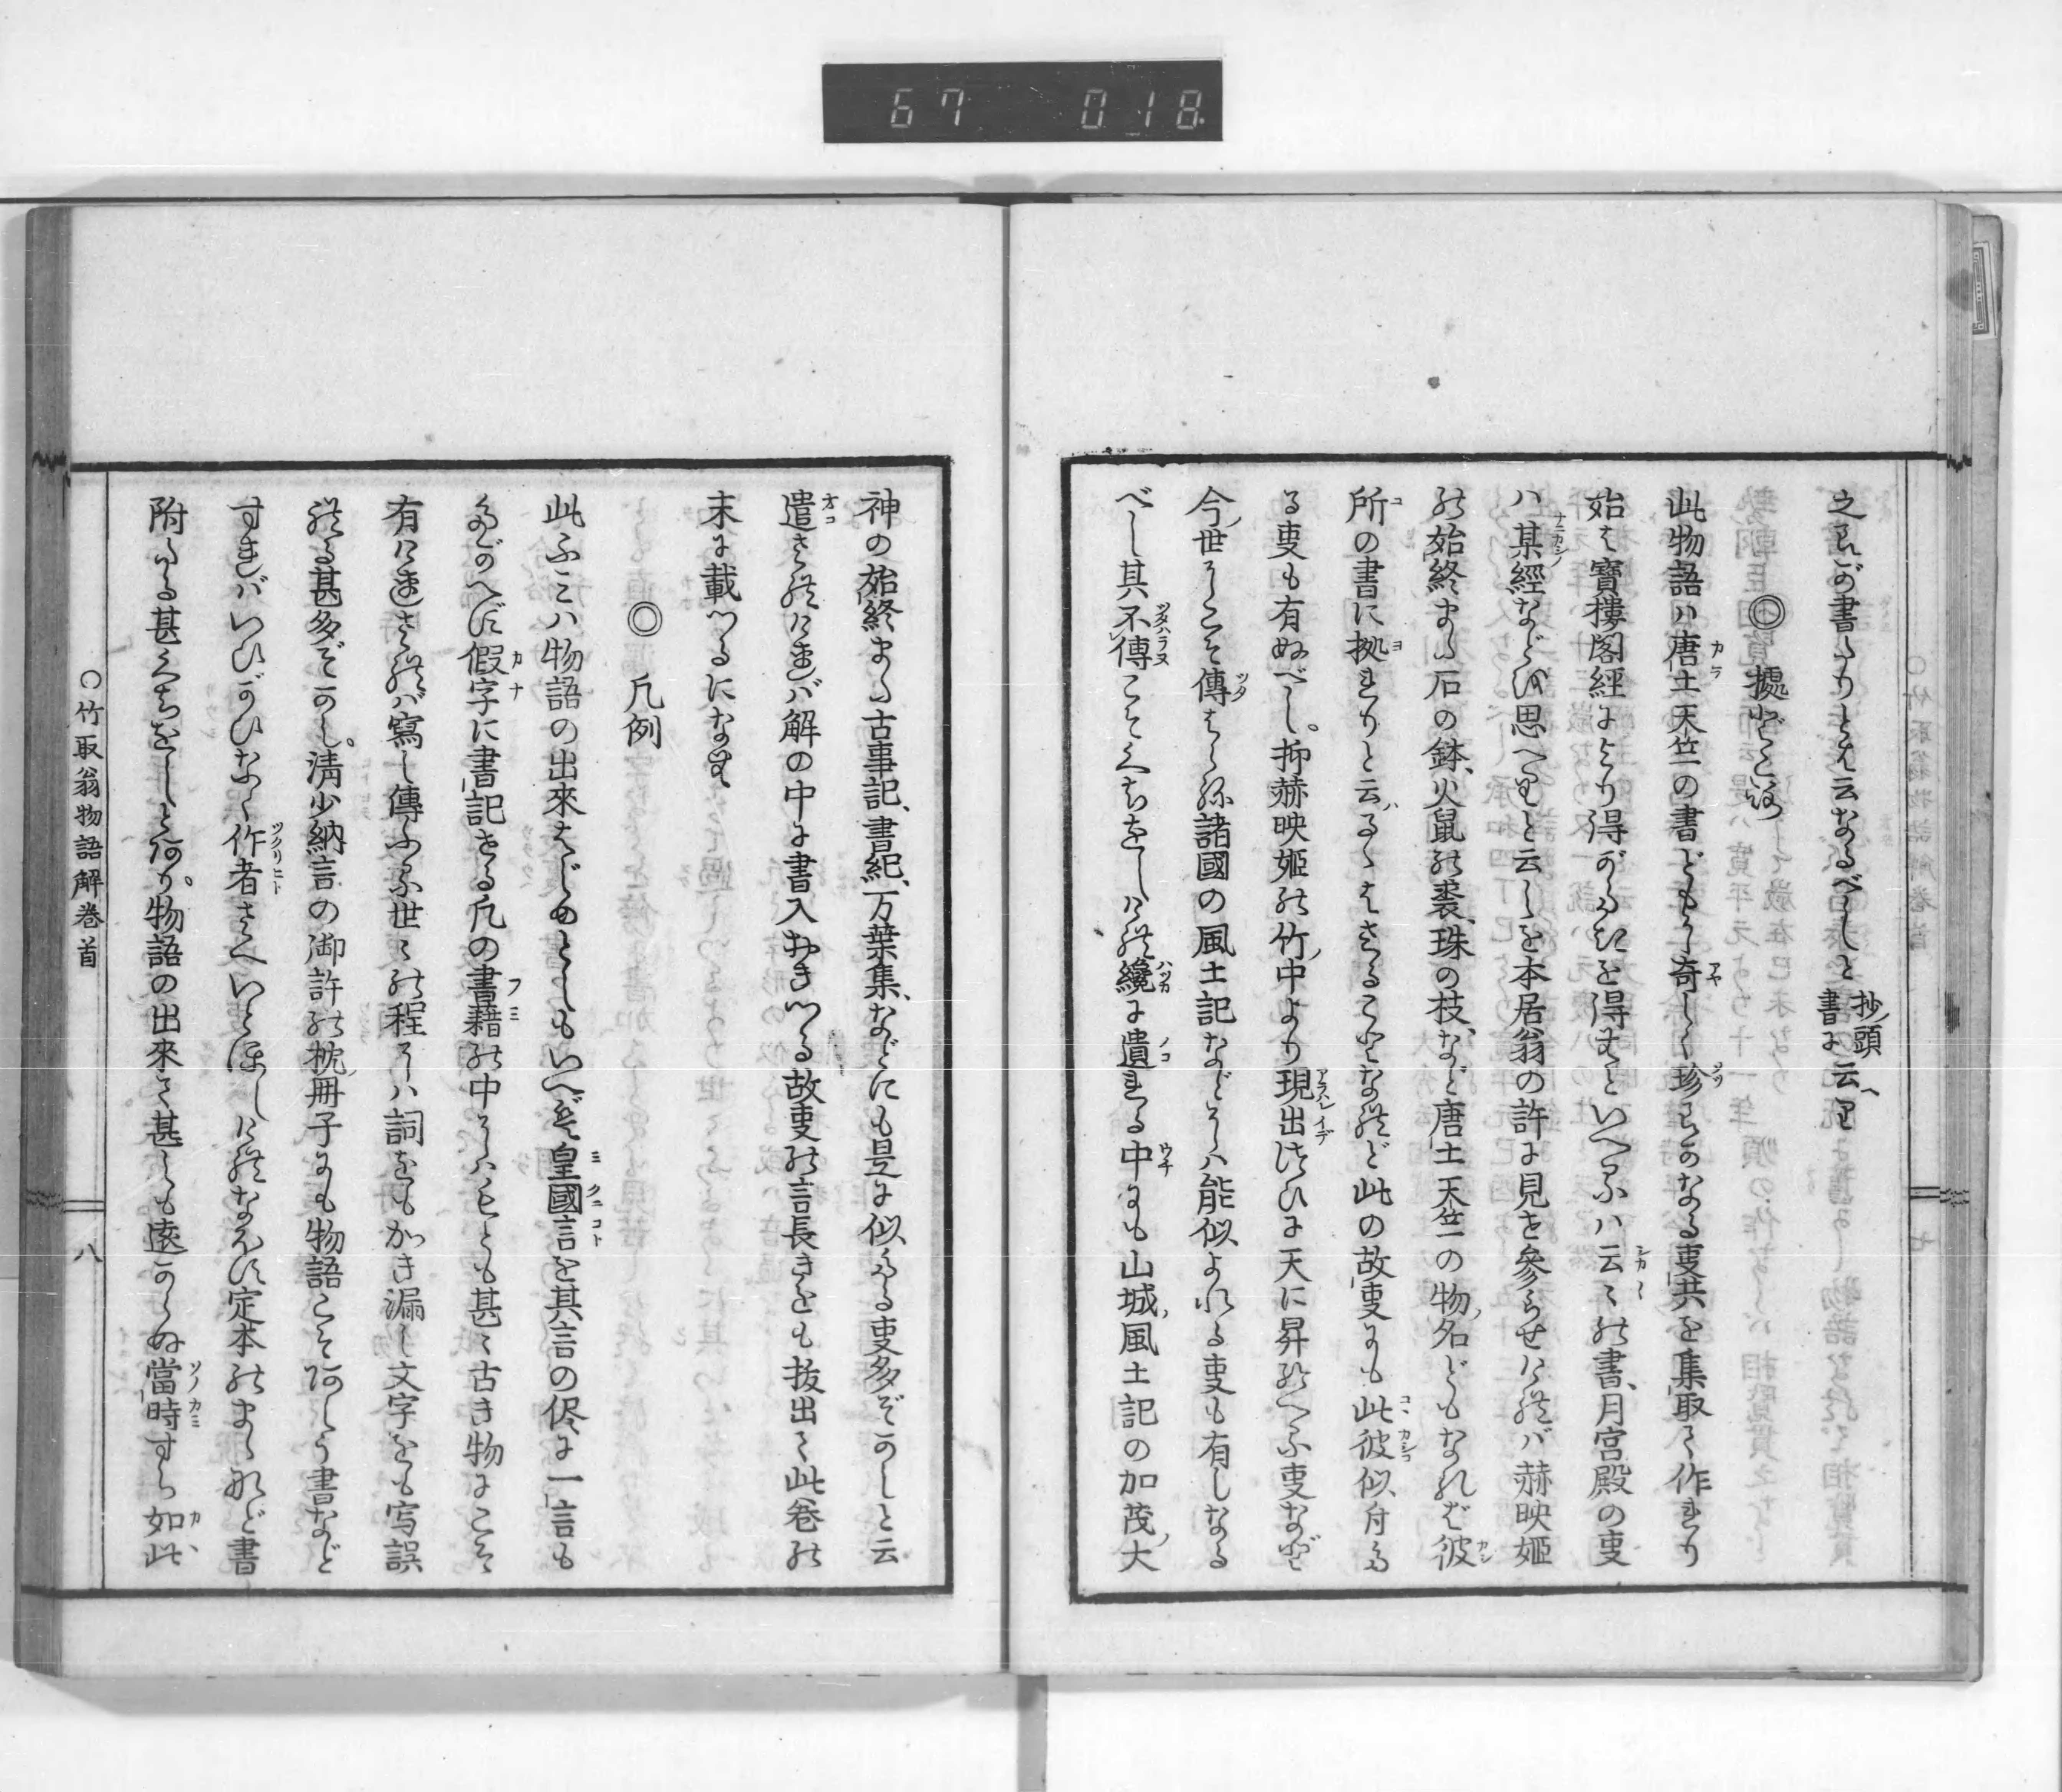 67 018
之らが書たりとも云なるべしと 抄頭書に云へり
◎ 據どころ
此物語ハ唐土天竺の書どもより奇しく珍らかなる事共を集取て作れり
始は寶樓閣經により得がたきを得むといへるハ云々の書、月宮殿の事
ハ某經などゝ思へりと云しを本居翁の許に見を参らせけれバ赫映姫
の始終また石の鉢、火鼠の裘、珠の枝、など唐土天竺の物名どもなれど彼
所の書に拠れりと云るゝはさることなれど此の故事にも此彼似付た
る事も有ぬべし。抑赫映姫の竹中より現出つひに天に昇給へる事など
今世にこそ傳はらね諸國の風土記などにハ能似よれる事も有しなる
べし其不傳こそくちをしけれ纔に遺れる中にも山城風土記の加茂大
神の始終また古事記、書紀、万葉集、などにも是に似たる事多ぞかしと云
遣されけれバ解の中に書入おきつる故事の言長きをも抜出て此巻の
末に載つるになむ
◎ 凡例
此ふミハ物語の出來はじめとしもいへバ皇國言を其言の侭に一言も
たがへず假字に書記せる凡の書籍の中にハもとも甚々古き物にこそ
有けれされバ寫し傳ふる世々の程にハ詞をもかき漏し文字をも写誤
れる甚多ぞかし。清少納言の御許の枕冊子にも物語こそあしう書など
すれバいひがひなく作者さへいとほしけれなほ定本のまゝなど書
附たる甚くちをしとあり。物語の出來て甚しも遠からぬ當時すら如此
○竹取翁物語解巻首
八